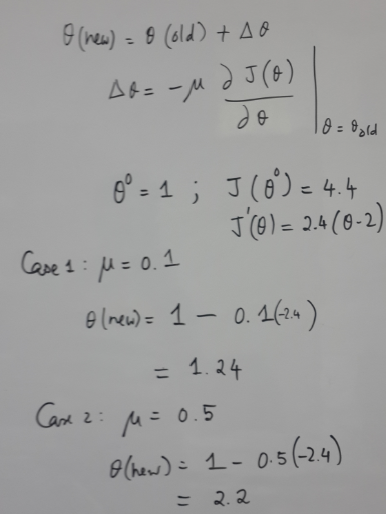 θ(new) = θ(old) + Δθ
Δθ = -μ ∂J(θ)/∂θ |θ=θold
θ⁰ = 1 ; J(θ⁰) = 4.4
J'(θ) = 2.4(θ-2)
Case 1 : μ = 0.1
θ(new) = 1 - 0.1(-2.4)
= 1.24
Case 2 : μ = 0.5
θ(new) = 1 - 0.5(-2.4)
= 2.2